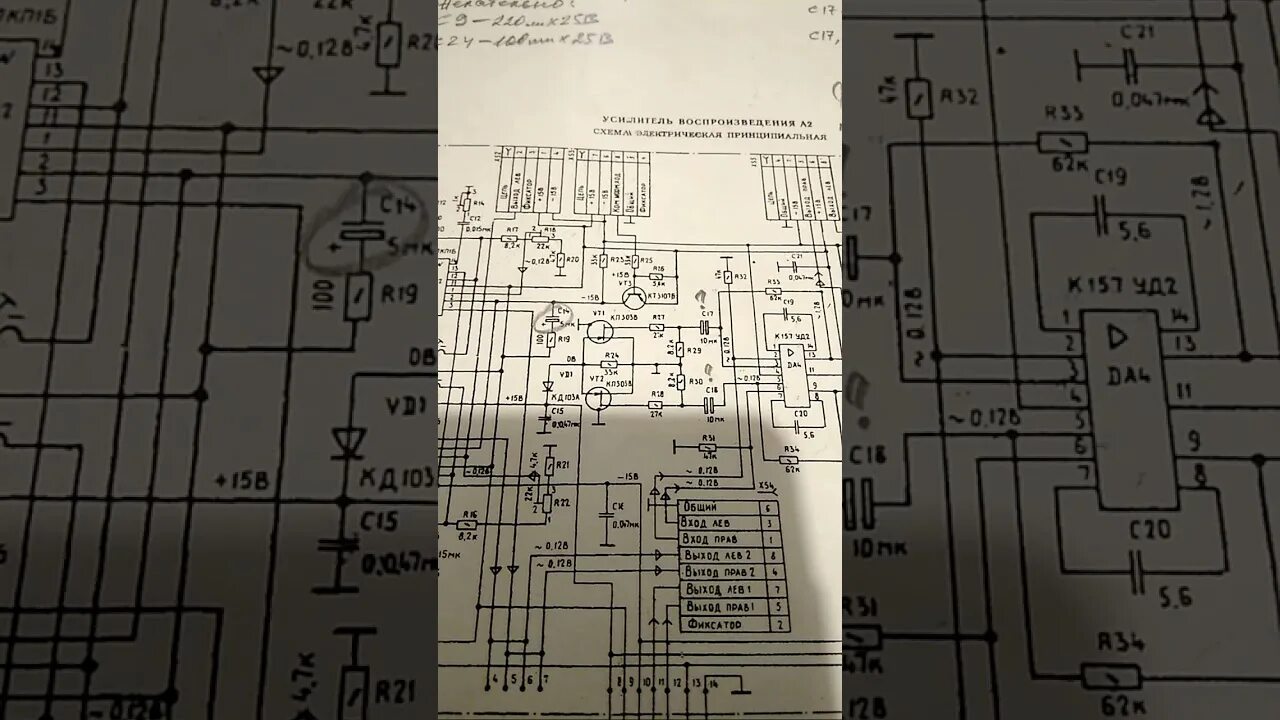 Желательно:
С9 – 220мк х 25В
С24 – 100мк х 25В
С17
С17,
УСИЛИТЕЛЬ ВОСПРОИЗВЕДЕНИЯ А2
СХЕМА ЭЛЕКТРИЧЕСКАЯ ПРИНЦИПИАЛЬНАЯ
Цепь
Выход лев
Фиксатор
+15В
-15В
Цепь
+15В
-15В
Общий
Фиксатор
Цепь
Общий
-15В
Выход прав
+15В
R14
C12
0,015мк
R17
8,2к
R18
22к
~0,12В
R20
R23
R25
+15В
R26
VT3
КТ3107В
R32
47к
C21
R33
62к
C19
5,6
-15В
C14
5мк
100
R19
VT1
КП303В
R27
2к
C17
10мк
К157 УД2
DA4
8,2к
R29
0В
VD1
КД103А
R24
33к
VT2
КП303В
8,2к
R30
C18
10мк
~0,12В
+15В
C15
0,047мк
R28
27к
C20
5,6
R31
47к
R34
62к
~0,12В
4,7к
R21
22к
R22
-15В
~0,12В
~0,12В
XS4
R16
8,2к
C16
0,047мк
Общий 6
Вход лев 3
Вход прав 1
Выход лев 2 8
Выход прав 2 4
Выход лев 1 7
Выход прав 1 5
Фиксатор 2
~0,12В
~0,12В
4 5 6 7 8 9 10 11 12 13 14
КП1Б
14
13
12
11
1
2
3
22к
8,2к
~0,12В
4,7к
C14
5мк
100
R19
0В
VD1
КД103
+15В
C15
0,047мк
4,7к
R21
~0,12В
C21
0,047мк
47к
R32
R33
62к
C19
5,6
~1,2В
C17
10мк
~0,12В
К157 УД2
DA4
1
2
3
4
5
6
7
14
13
11
9
8
~0,12В
C18
10мк
C20
5,6
R31
47к
R34
62к